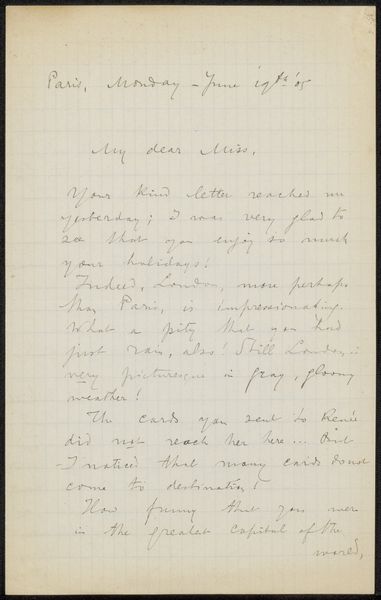 Paris, Monday - June 19th '05
My dear Miss,
Your kind letter reached me
yesterday; I was very glad to
see that you enjoy so much
your holidays!
Indeed, London, more perhaps
than Paris, is impressionating.
What a pity that you had
just rain, also! Still London is
very picturesque in gray, gloomy
weather!
The cards you sent to Renée
did not reach her here... But
I noticed that many cards do not
come to destination!
How funny that you were
in the greatest capital of the
world,